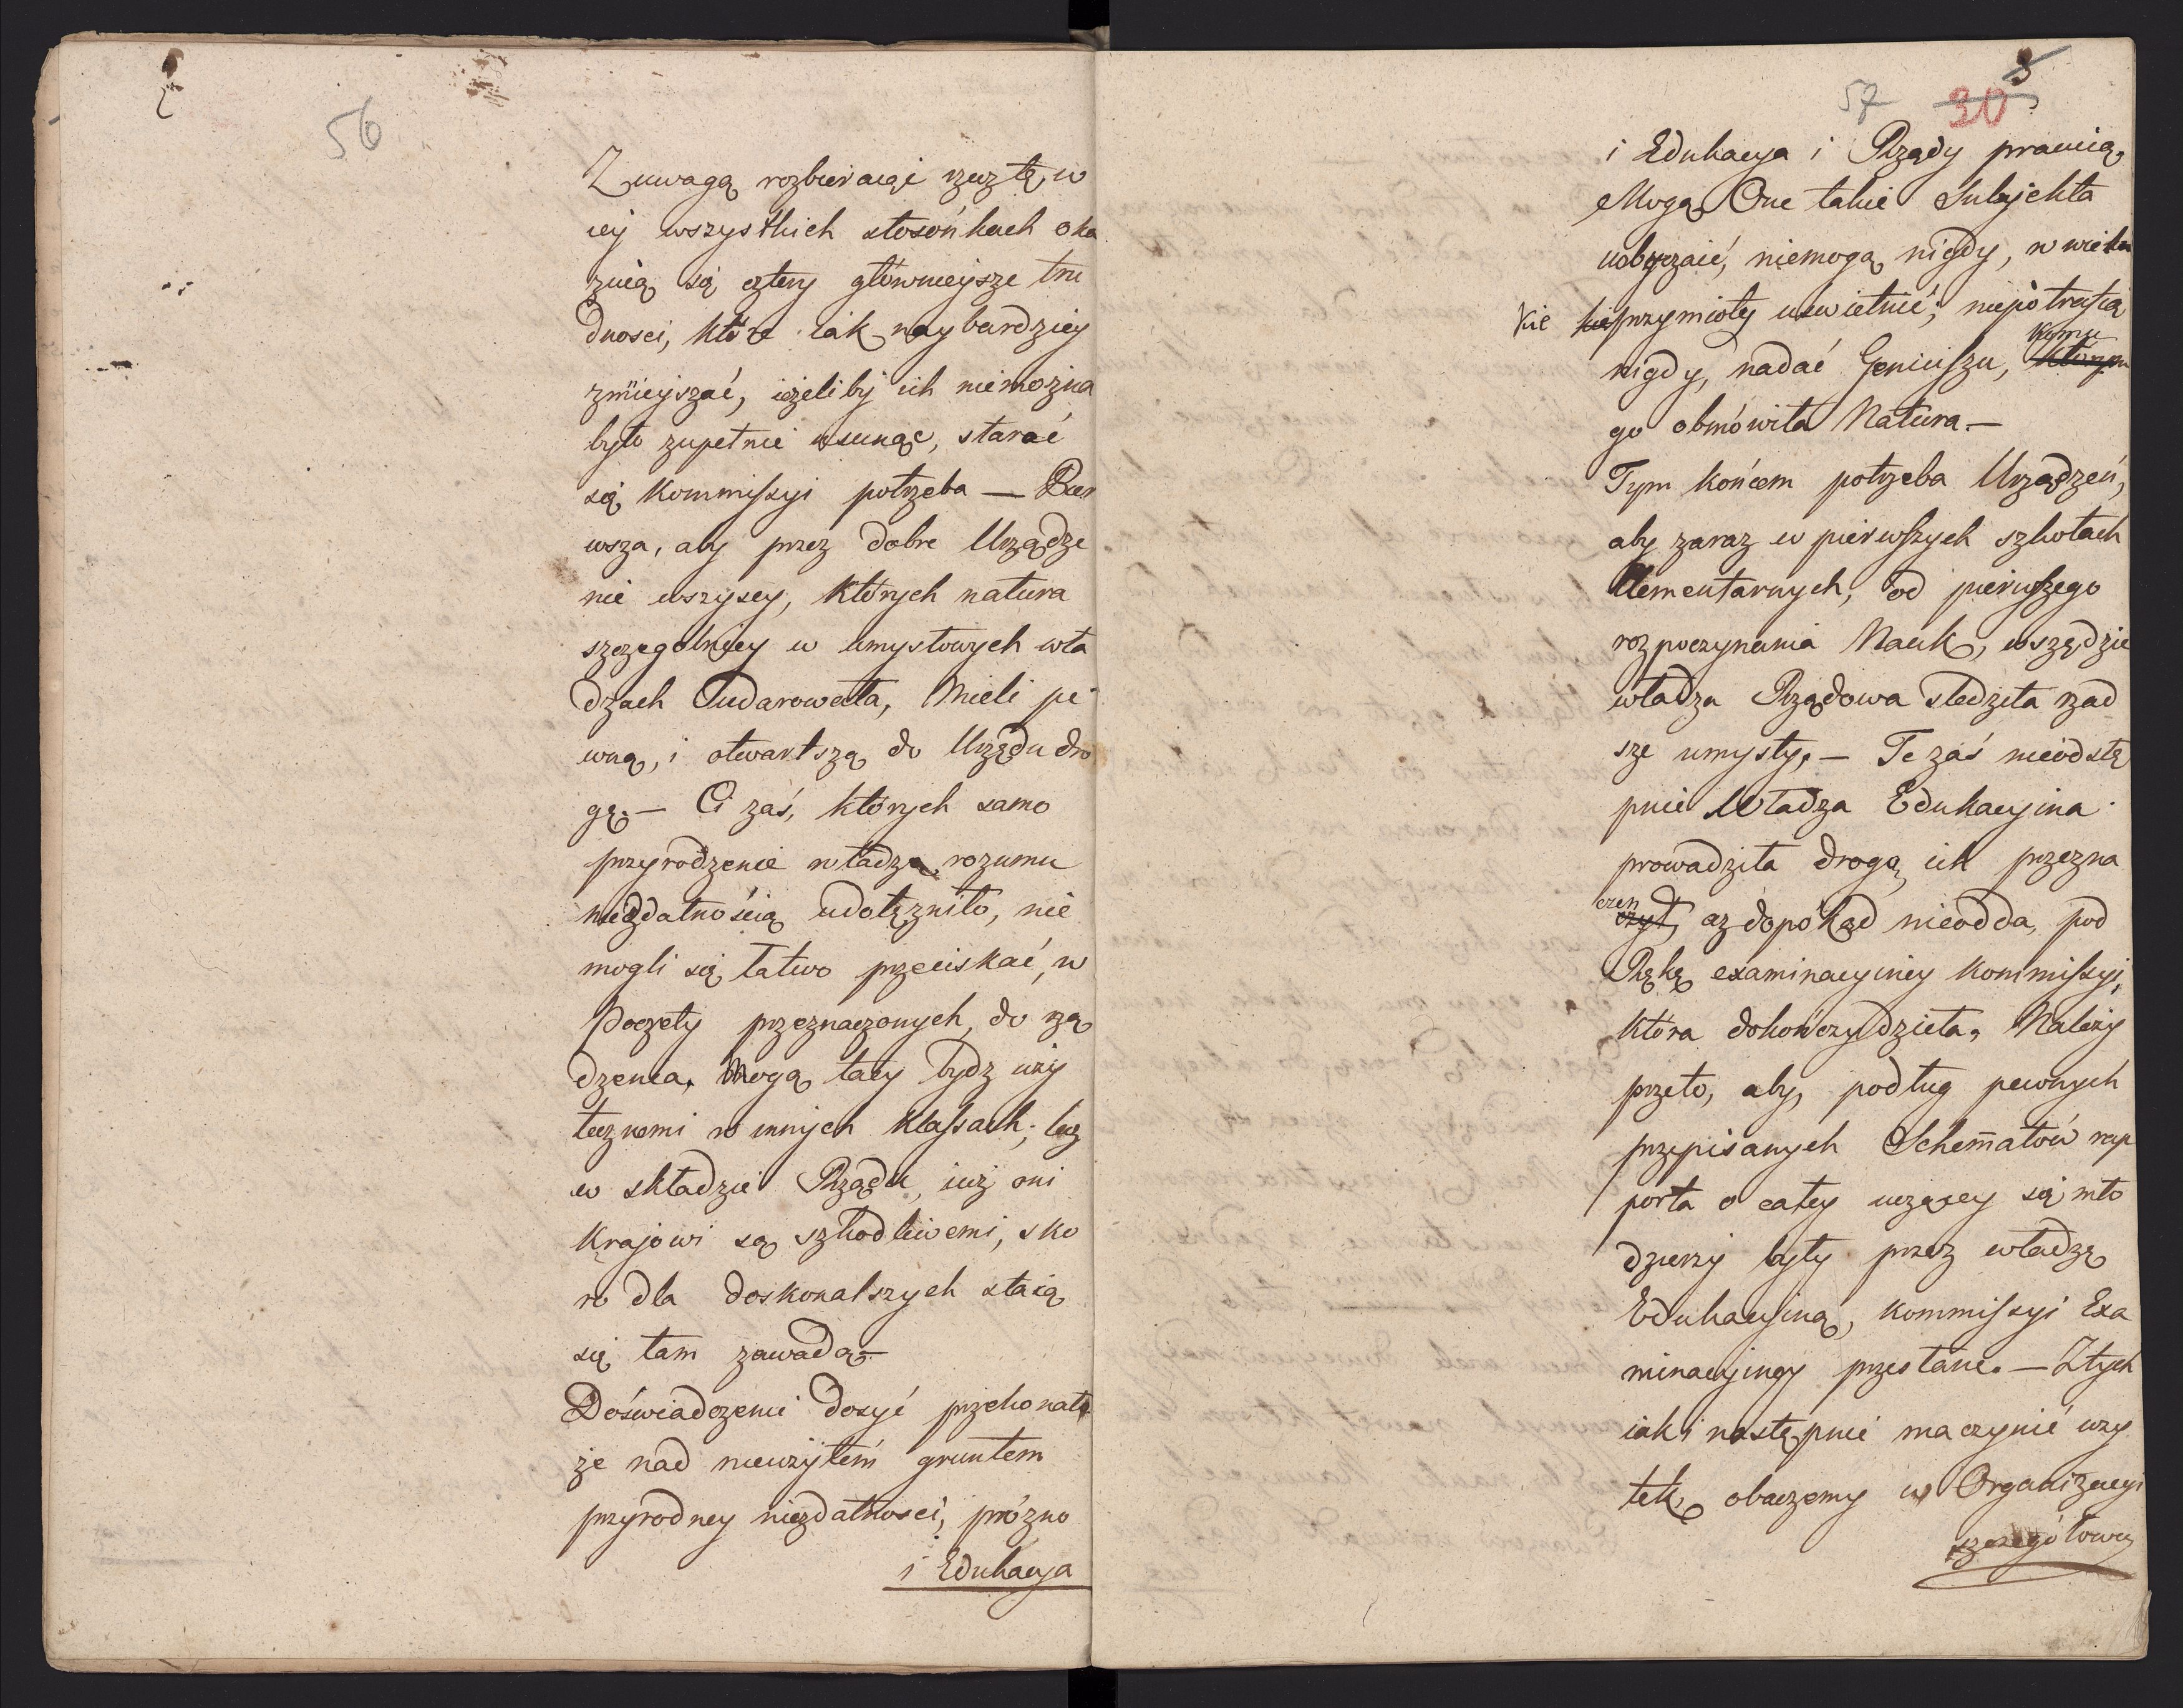 56
Z uwagą rozbieraiąc rzecz tę, w
iey wszystkich stosońkach oka
zuią się cztery głównieysze tru
dności, które iak naybardziey
zmieyszać, ieżeliby ich niemożna
było zupełnie usunąć, starać
się Kommissyi potrzeba — Pier
wsza, aby przez dobre Urządze
nie wszyscy, których natura
szczególniey w umysłowych wła
dzach udarowała, Mieli pe
wną, i otwartszą do Urzędu dro
gę. — Ci zaś, których samo
przyrodzenie władzą rozumu
niezdatnością udotężniło, nie
mogli się łatwo przeciskać, w
Poczety przeznaczonych, do rzą
dzenia. Mogą tacy bydz uży
tecznemi w innych klassach; lecz
w składzie Rządu, iuż oni
Krajowi są szkodliwemi, sko
ro dla doskonalszych staią
się tam zawadą. —
Doświadczenie dosyć przekonało
że nad nieużytém gruntem
przyrodney niezdatności, prózno
i Edukacya
5
57 30
i Edukacya i Rządy pracuią,
Mogą One takie Subjekta
uobyczaić, niemogą nigdy, w wiel
kie kie przymioty uświetnić; niepotrafią
nigdy, nadać Geniuszu, któryn
komu
go obmówiła Natura. —
Tym końcem potrzeba Urządzeń,
aby zaraz w pierwszych szkołach
Elementarnych, od pierwszego
rozpoczynania Nauk, wszędzie
władza Rządowa sledziła rzad
sze umysły, — Te zaś nieodstę
pnie Władza Edukacyina
prowadziła drogą ich przezna
czen
czyt, az dopókąd nieodda, pod
Rękę examinacyiney Kommissyi,
która dokończy dzieła, Należy
przeto, aby, podług pewnych
przepisanych Schematów rap
porta o całey uczącey się mło
dzierzy były przez władzę
Edukacyiną, Kommissyi Exa
minacyiney przesłane. — Z tych
iaki następnie ma czynić uży
tek, obaczemy w Organizacyi
szczegółowey